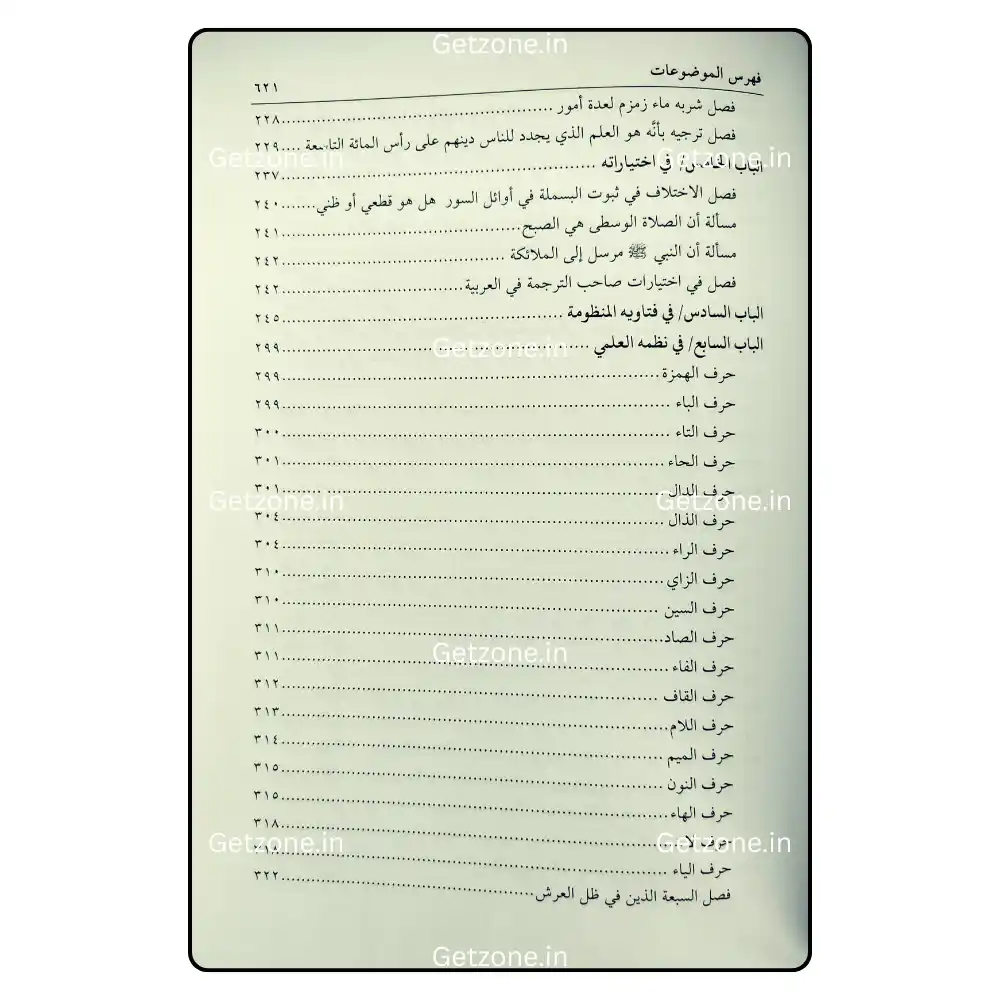 Getzone.in
فهرس الموضوعات ٦٢١
فصل شربه ماء زمزم لعدة أمور ٢٢٨
فصل ترجيه بأنَّه هو العلم الذي يجدد للناس دينهم على رأس المائة التاسعة ٢٢٩
Getzone.in Getzone.in
الباب الخامس/ في اختياراته ٢٣٧
فصل الاختلاف في ثبوت البسملة في أوائل السور هل هو قطعي أو ظني ٢٤٠
مسألة أن الصلاة الوسطى هي الصبح ٢٤١
مسألة أن النبي ﷺ مرسل إلى الملائكة ٢٤٢
فصل في اختيارات صاحب الترجمة في العربية ٢٤٢
الباب السادس/ في فتاويه المنظومة ٢٤٥
الباب السابع/ في نظمه العلمي ٢٩٩
Getzone.in
حرف الهمزة ٢٩٩
حرف الباء ٢٩٩
حرف التاء ٣٠٠
حرف الحاء ٣٠١
حرف الدال ٣٠١
Getzone.in Getzone.in
حرف الذال ٣٠٤
حرف الراء ٣٠٤
حرف الزاي ٣١٠
حرف السين ٣١٠
حرف الصاد ٣١١
Getzone.in
حرف الفاء ٣١١
حرف القاف ٣١٢
حرف اللام ٣١٣
حرف الميم ٣١٤
حرف النون ٣١٥
حرف الهاء ٣١٥
حرف لا ٣١٨
Getzone.in Getzone.in
حرف الياء
فصل السبعة الذين في ظل العرش ٣٢٢
Getzone.in